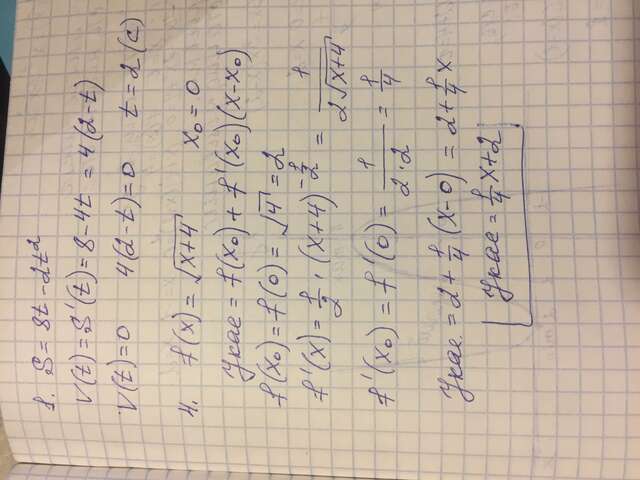 1. S = 8t - 2t²
V(t) = S'(t) = 8 - 4t = 4(2-t)
V(t) = 0 4(2-t) = 0 t = 2 (c)
4. f(x) = √(x+4) x₀ = 0
Yкас = f(x₀) + f'(x₀)(x-x₀)
f(x₀) = f(0) = √4 = 2
f'(x) = 1/2 · (x+4)^(-1/2) = 1/(2√(x+4))
f'(x₀) = f'(0) = 1/(2·2) = 1/4
Yкас. = 2 + 1/4 (x-0) = 2 + 1/4 x
Yкас = 1/4 x + 2